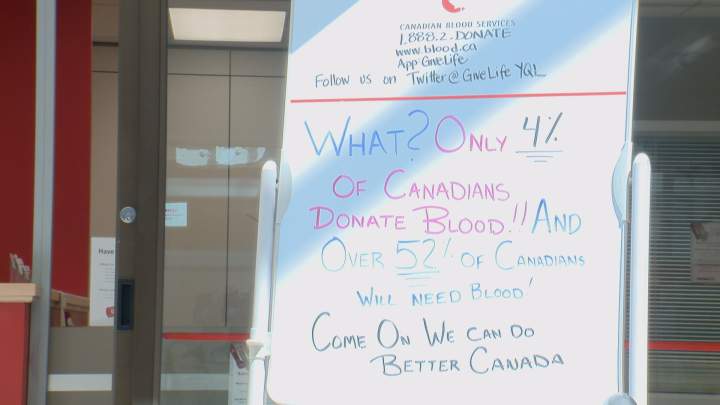 CANADIAN BLOOD SERVICES
1.888.2.DONATE
www.blood.ca
App GiveLife
Follow us on Twitter@GiveLifeYQL
WHAT? ONLY 4%
OF CANADIANS
DONATE BLOOD!! AND
OVER 52% OF CANADIANS
WILL NEED BLOOD!
COME ON WE CAN DO
BETTER CANADA
Have